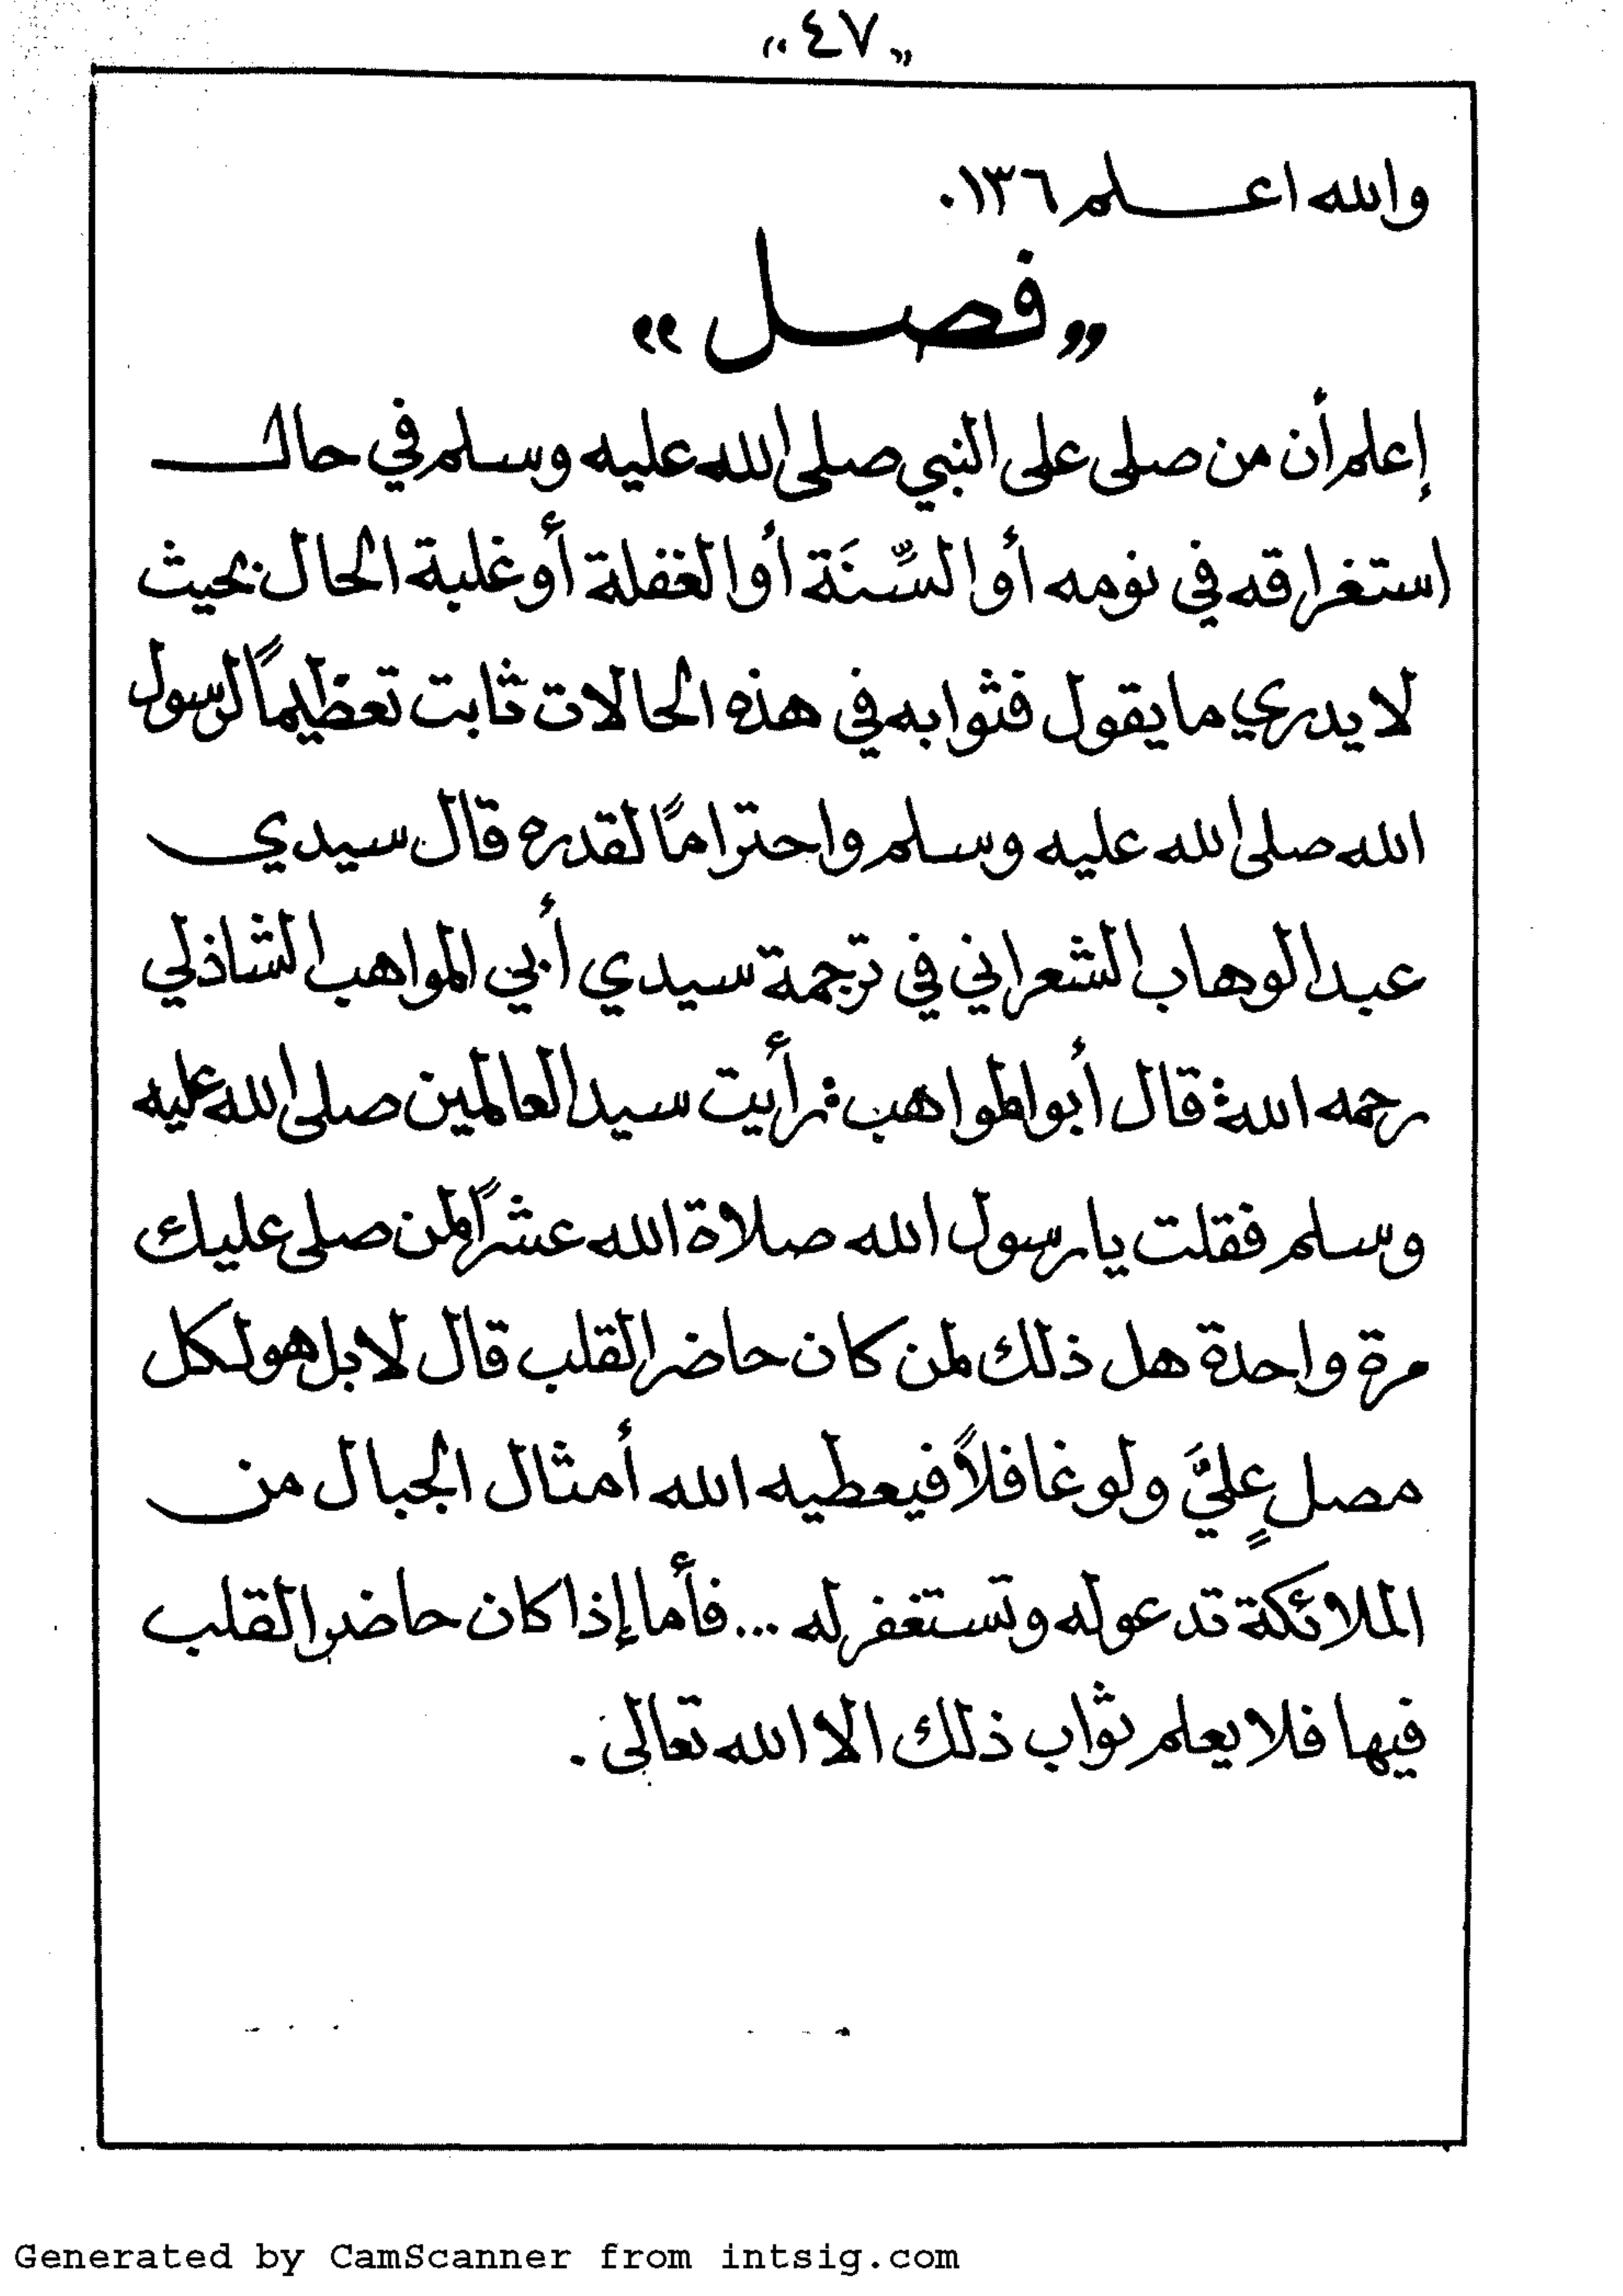 «٤٧»
والله اعلم ١٣٦.
«فصل»
إعلم أن من صلى على النبي صلى الله عليه وسلم في حال
استغراقه في نومه أو السِّنَة أو الغفلة أو غلبة الحال بحيث
لا يدري ما يقول فثوابه في هذه الحالات ثابت تعظيمًا لرسول
الله صلى الله عليه وسلم واحترامًا لقدره قال سيدي
عبد الوهاب الشعراني في ترجمة سيدي أبي المواهب الشاذلي
رحمه الله: قال أبو المواهب: رأيت سيد العالمين صلى الله عليه
وسلم فقلت يا رسول الله صلاة الله عشرًا لمن صلى عليك
مرة واحدة هل ذلك لمن كان حاضر القلب قال لا بل هو لكل
مصلٍ عليَّ ولو غافلاً فيعطيه الله أمثال الجبال من
الملائكة تدعو له وتستغفر له ... فأما إذا كان حاضر القلب
فيها فلا يعلم ثواب ذلك الا الله تعالى.
Generated by CamScanner from intsig.com